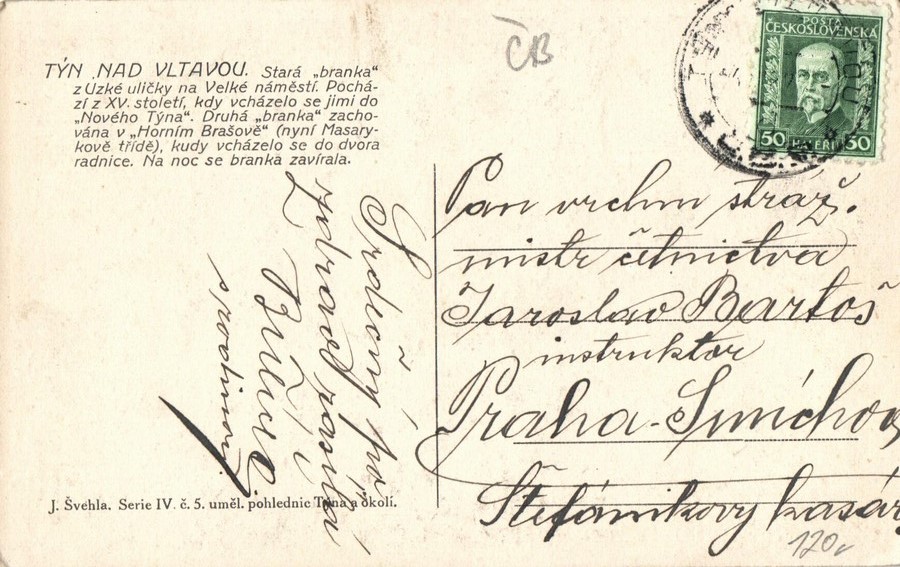 TÝN NAD VLTAVOU. Stará „branka“
z Úzké uličky na Velké náměstí. Pochá-
zí z XV. století, kdy vcházelo se jimi do
„Nového Týna“. Druhá „branka“ zacho-
vána v „Horním Brašově“ (nyní Masary-
kově třídě), kudy vcházelo se do dvora
radnice. Na noc se branka zavírala.
ČB
POŠTA
ČESKOSLOVENSKÁ
50 HALÉŘŮ 50
Pan vrchní straž.
mistr četnictva
Jaroslav Bartoš
instruktor
Praha-Smíchov
Štefánikovy kasár
120,-
Srdečný po
zdrav zasílá
s rodinou
J. Švehla. Serie IV. č. 5. uměl. pohlednic Týna a okolí.